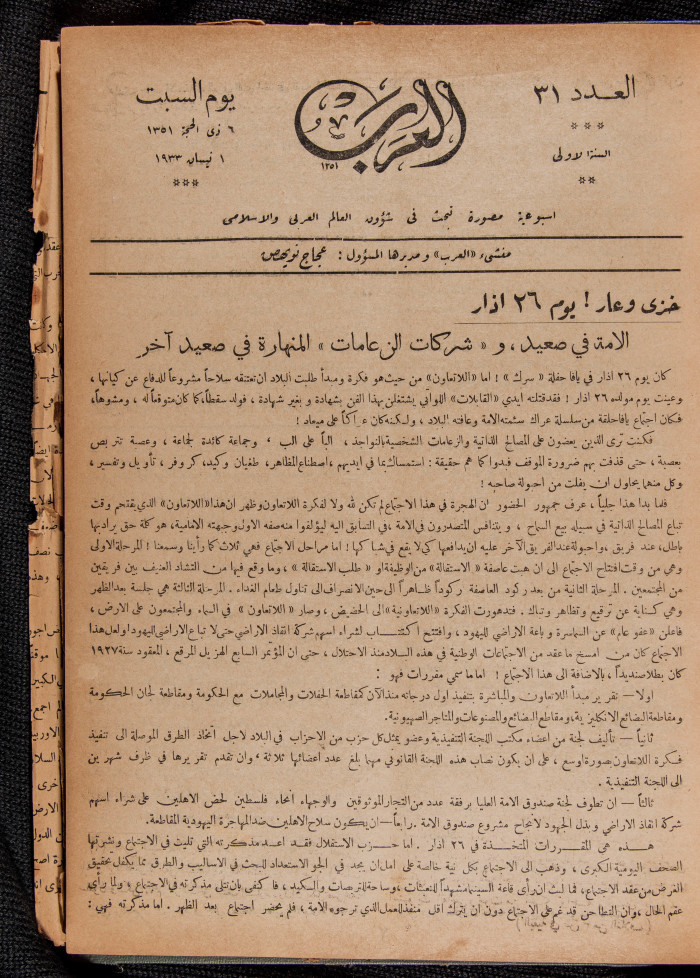 العدد ٣١
السنة الاولى
العرب
١٣٥١
يوم السبت
٦ ذى الحجة ١٣٥١
١ نيسان ١٩٣٣
اسبوعية مصورة تبحث فى شؤون العالم العربى والاسلامى
منشىء «العرب» ومديرها المسؤول : عجاج نويهض
خزى وعار ! يوم ٢٦ اذار
الامة في صعيد ، و « شركات الزعامات » المنهارة في صعيد آخر
كان يوم ٢٦ اذار في يافا حفلة « سرك » ! اما «اللاتعاون» من حيث هو فكرة ومبدأ طلبت البلاد ان تعتنقه سلاحاً مشروعاً للدفاع عن كيانها ،
وعينت يوم مولده ٢٦ اذار ! فقد قتلته ايدي «القابلات» اللواتي يشتغلن بهذا الفن بشهادة و بغير شهادة ، فولد سقطاً، كما كان متوقعاً له ، ومشوهاً،
فكان اجتماع يافا حلقة من سلسلة عراك سئمته الامة وعافته البلاد ، ولكنه كان عراكاً على ميعاد !
فكنت ترى الذين يعضون على المصالح الذاتية والزعامات الشخصية بالنواجذ ، الباً على الب ، وجماعة كائدة لجماعة ، وعصبة تتربص
بعصبة ، حتى قذفت بهم ضرورة الموقف فبدوا كما هم حقيقة : استمساك بما في ايديهم ، اصطناع المظاهر، طغيان وكيد، كر وفر ، تأويل وتفسير ،
وكل منهما يحاول ان يفلت من احبولة صاحبه !
فلما بدا هذا جلياً ، عرف جمهور الحضور ان الهجرة في هذا الاجتماع لم تكن لله ولا لفكرة اللاتعاون وظهر ان هذا «اللاتعاون» الذي يقتحم وقت
تباع المصالح الذاتية في سبيله بيع السماح ، و يتنافس المتصدرون في الامة ، في التسابق اليه ليؤلفوا منه صفه الاول وجبهته الامامية، هو كلمة حق يراد بها
باطل، عند فريق ، واحبولة عند الفريق الآخر عليه ان يدافعها كي لا يقع في شباكها ! اما مراحل الاجتماع فهي ثلاث كما رأينا وسمعنا ! المرحلة الاولى
وهي من وقت افتتاح الاجتماع الى ان هبت عاصفة « الاستقالة» من الوظيفة او « طلب الاستقالة » ، وما وقع فيها من التشاد العنيف بين فريقين
من المجتمعين . المرحلة الثانية من بعد ركود العاصفة ركوداً ظاهراً الى حين الانصراف الى تناول طعام الغداء . المرحلة الثالثة هي جلسة بعد الظهر
وهي كناية عن ترقيع وتظاهر وتباك . فتدهورت الفكرة « اللاتعاونية» الى الحضيض ، وصار « اللاتعاون » في السماء والمجتمعون على الارض ،
فاعلن «عفو عام» عن السماسرة و باعة الاراضي لليهود ، وافتتح اكتتاب لشراء اسهم شركة انقاذ الاراضي حتى لا تباع الاراضي لليهود! ولعل هذا
الاجتماع كان من امسخ ما عقد من الاجتماعات الوطنية في هذه البلاد منذ الاحتلال ، حتى ان المؤتمر السابع الهزيل المرقع ، المعقود سنة ١٩٢٧
كان بطلا صنديداً ، بالاضافة الى هذا الاجتماع ! اما ما سمي مقررات فهو :
اولا — تقرير مبدأ اللاتعاون والمباشرة بتنفيذ اول درجاته منذ الآن كمقاطعة الحفلات والمجاملات مع الحكومة ومقاطعة لجان الحكومة
ومقاطعة البضائع الانكليزية ، ومقاطع البضائع والمصنوعات والمتاجر الصهيونية.
ثانياً — تأليف لجنة من اعضاء مكتب اللجنة التنفيذية وعضو يمثل كل حزب من الاحزاب في البلاد لاجل اتخاذ الطرق الموصلة الى تنفيذ
فكرة اللاتعاون بصورة اوسع ، على ان يكون نصاب هذه اللجنة القانوني مهما بلغ عدد اعضائها ثلاثة ، وان تقدم تقريرها في ظرف شهرين
الى اللجنة التنفيذية .
ثالثاً — ان تطوف لجنة صندوق الامة العليا برفقة عدد من التجار الموثوقين والوجهاء انحاء فلسطين لحض الاهلين على شراء اسهم
شركة انقاذ الاراضي وبذل الجهود لانجاح مشروع صندوق الامة . رابعاً — ان يكون سلاح الاهلين ضد المهاجرة اليهودية المقاطعة.
هذه هي المقررات المتخذة في ٢٦ اذار . اما حزب الاستقلال فقد اعد مذكرته التي تليت في الاجتماع ونشرتها
الصحف اليومية الكبرى ، وذهب الى الاجتماع بكل نية خالصة على امل ان يجد في الجو الاستعداد للبحث في الاساليب والطرق مما يكفل تحقيق
الغرض من عقد الاجتماع، فما لبث ان رأى قاعة السينما مشهداً للتعنتات ، وساحة للتربصات والكيد، فاكتفى بان تتلى مذكرته في الاجتماع ، ولما رأى
عقم الحال ، وان التطاحن قد غم على الاجتماع دون ان يترك اقل منفذ للعمل الذي ترجوه الامة ، فلم يحضر اجتماع بعد الظهر . اما مذكرته فهي :